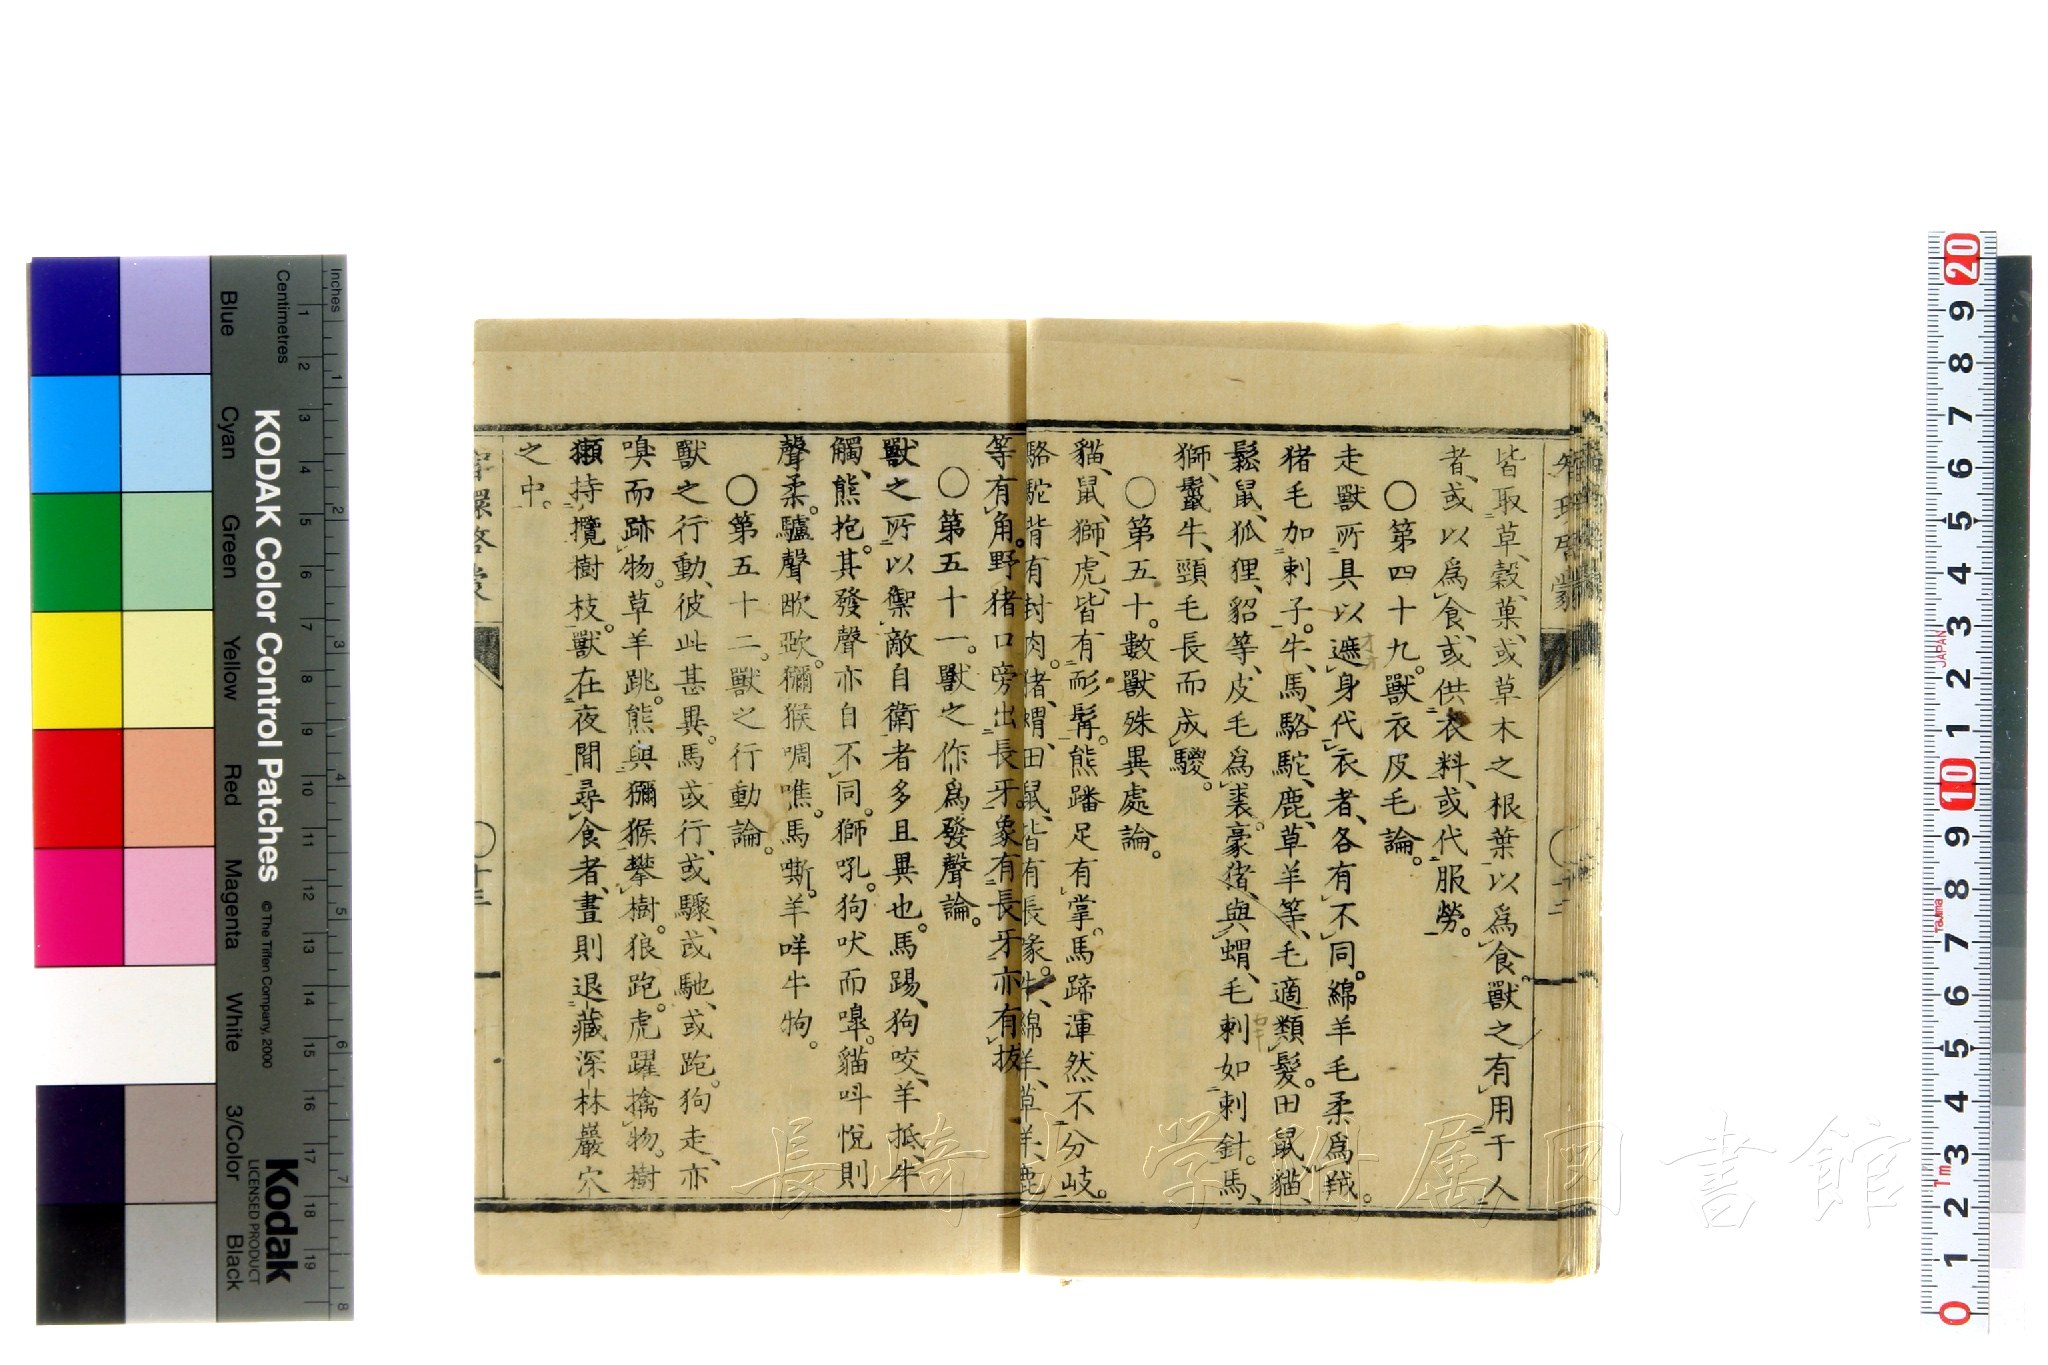 皆取草、穀、菓、或草木之根葉以爲食。獸之有用于人
者、或以爲食、或供衣料、或代服勞。
〇第四十九。獸衣皮毛論。
走獸所具以遮身代衣者、各有不同。綿羊毛柔爲羢。
猪毛加刺子。牛、馬、駱駝、鹿、草羊等、毛適類髮。田鼠、貓、
鬆鼠、狐狸、貂等、皮毛爲裘。豪猪、與蝟、毛刺如刺針。馬、
獅、鬣牛、頸毛長而成騣。
〇第五十。數獸殊異處論。
貓、鼠、獅、虎、皆有髭髯。熊蹯足有掌。馬蹄渾然不分岐。
駱駝背有封肉。猪、蝟、田鼠、皆有長喙。牛、綿羊、草羊、鹿
等有角。野猪口旁出長牙。象有長牙亦有拔
〇第五十一。獸之作爲發聲論。
獸之所以禦敵自衛者多且異也。馬踢、狗咬、羊抵、牛
觸、熊抱。其發聲亦自不同。獅吼。狗吠而嘷。貓呌悅則
聲柔。驢聲歐歐。獼猴啁噍。馬嘶。羊咩牛牰。
〇第五十二。獸之行動論。
獸之行動、彼此甚異。馬或行、或驟、或馳、或跑。狗走、亦
嗅而跡物。草羊跳。熊與獼猴攀樹。狼跑。虎躍擒物。樹
獺持攬樹枝。獸在夜間尋食者、晝則退藏深林巖穴
之中。
智環啓蒙
〇十二
〇十三
KODAK Color Control Patches
© The Tiffen Company, 2000
Kodak
LICENSED PRODUCT
Inches
Centimetres
Blue
Cyan
Green
Yellow
Red
Magenta
White
3/Color
Black
長崎大学附属図書館
JAPAN
Tajima
7m